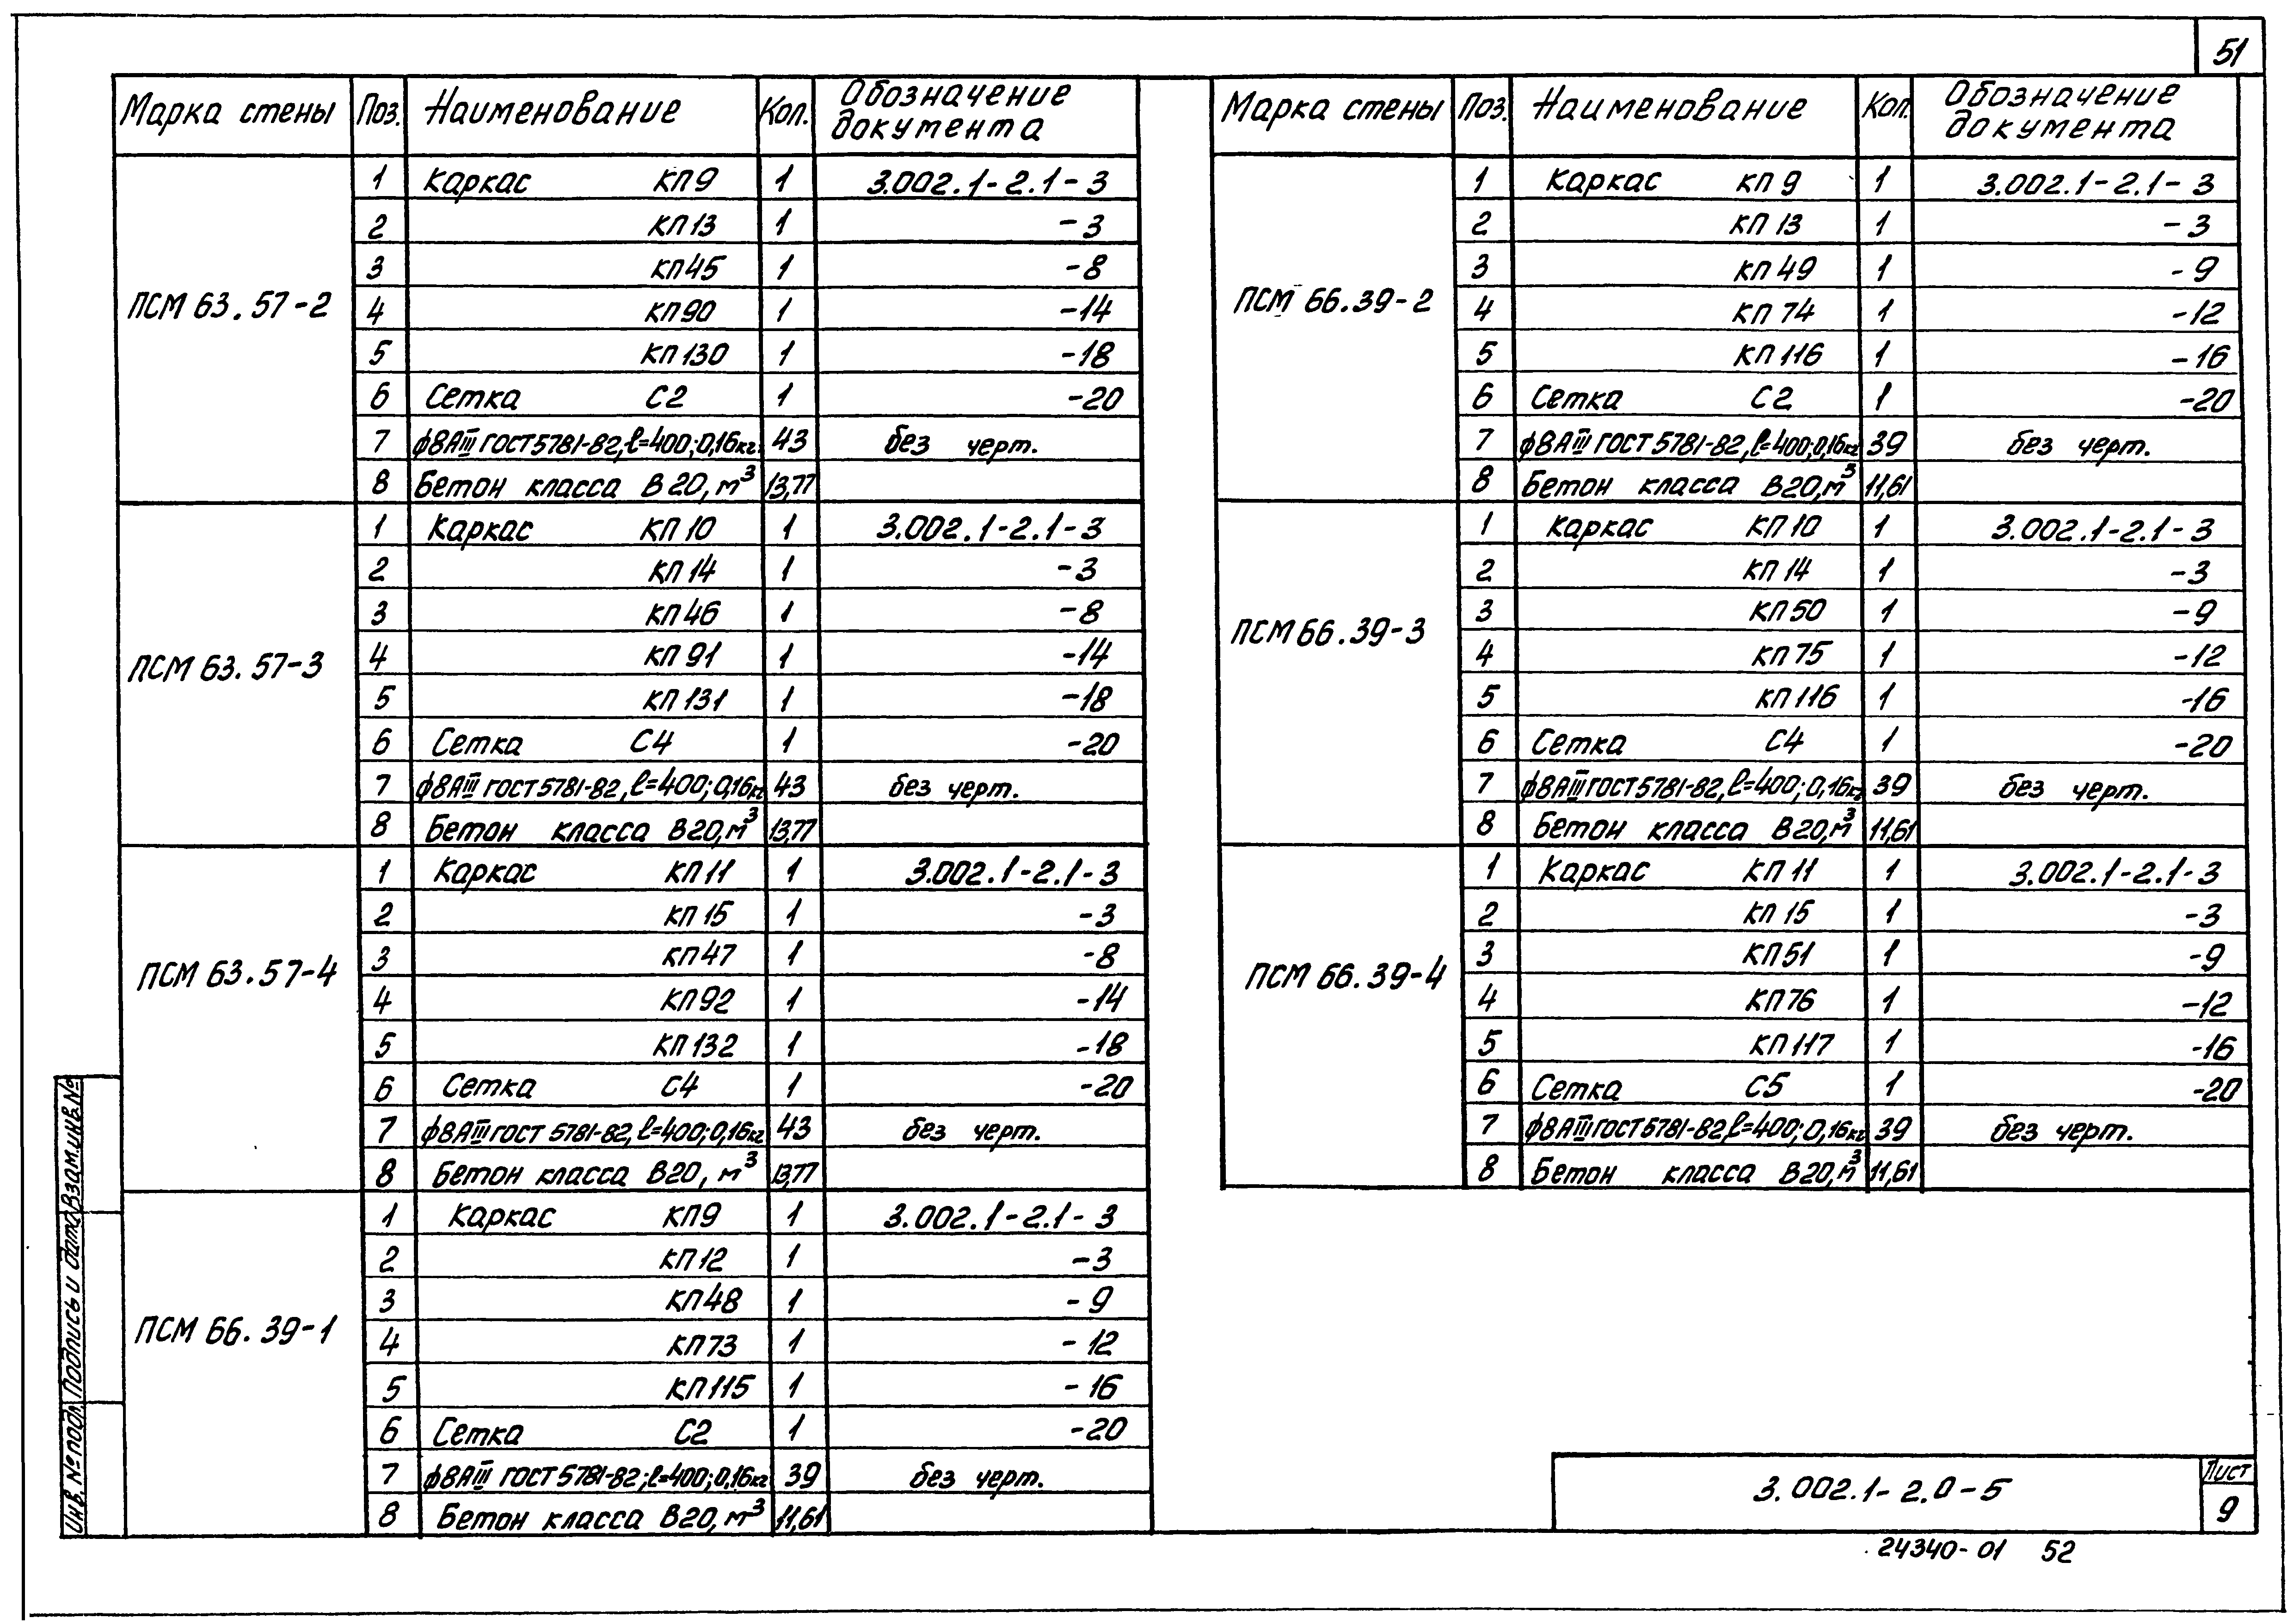 51
Марка стены Поз. Наименование Кол. Обозначение документа
ПСМ 63.57-2
1 Каркас КП9 1 3.002.1-2.1-3
2 КП13 1 -3
3 КП45 1 -8
4 КП90 1 -14
5 КП130 1 -18
6 Сетка С2 1 -20
7 ф8АIII ГОСТ5781-82, ℓ=400; 0,16кг. 43 без черт.
8 Бетон класса В20, м³ 13,77
ПСМ 63.57-3
1 Каркас КП10 1 3.002.1-2.1-3
2 КП14 1 -3
3 КП46 1 -8
4 КП91 1 -14
5 КП131 1 -18
6 Сетка С4 1 -20
7 ф8АIII ГОСТ5781-82, ℓ=400; 0,16кг 43 без черт.
8 Бетон класса В20, м³ 13,77
ПСМ 63.57-4
1 Каркас КП11 1 3.002.1-2.1-3
2 КП15 1 -3
3 КП47 1 -8
4 КП92 1 -14
5 КП132 1 -18
6 Сетка С4 1 -20
7 ф8АIII ГОСТ 5781-82, ℓ=400; 0,16кг 43 без черт.
8 Бетон класса В20, м³ 13,77
ПСМ 66.39-1
1 Каркас КП9 1 3.002.1-2.1-3
2 КП12 1 -3
3 КП48 1 -9
4 КП73 1 -12
5 КП115 1 -16
6 Сетка С2 1 -20
7 ф8АIII ГОСТ5781-82; ℓ=400; 0,16кг 39 без черт.
8 Бетон класса В20, м³ 11,61
Марка стены Поз. Наименование Кол. Обозначение документа
ПСМ 66.39-2
1 Каркас КП9 1 3.002.1-2.1-3
2 КП13 1 -3
3 КП49 1 -9
4 КП74 1 -12
5 КП116 1 -16
6 Сетка С2 1 -20
7 ф8АIII ГОСТ5781-82, ℓ=400; 0,16кг 39 без черт.
8 Бетон класса В20, м³ 11,61
ПСМ 66.39-3
1 Каркас КП10 1 3.002.1-2.1-3
2 КП14 1 -3
3 КП50 1 -9
4 КП75 1 -12
5 КП116 1 -16
6 Сетка С4 1 -20
7 ф8АIII ГОСТ5781-82, ℓ=400; 0,16кг 39 без черт.
8 Бетон класса В20, м³ 11,61
ПСМ 66.39-4
1 Каркас КП11 1 3.002.1-2.1-3
2 КП15 1 -3
3 КП51 1 -9
4 КП76 1 -12
5 КП117 1 -16
6 Сетка С5 1 -20
7 ф8АIII ГОСТ5781-82, ℓ=400; 0,16кг 39 без черт.
8 Бетон класса В20, м³ 11,61
Инв. № подл. Подпись и дата Взам.инв.№
3.002.1-2.0-5 Лист 9
24340-01 52